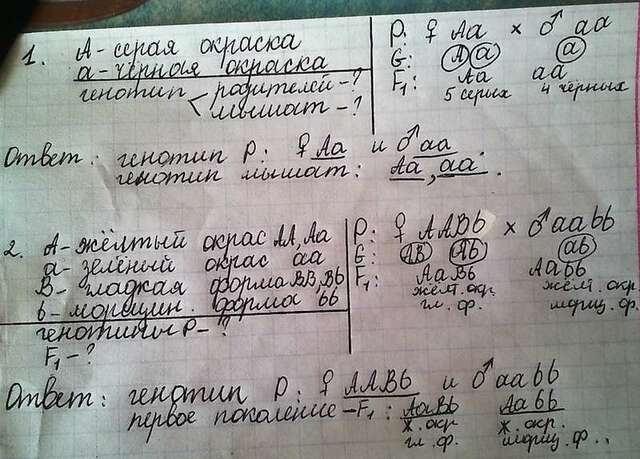 1. А-серая окраска
а-чёрная окраска
генотип родителей-?
мышат-?
P: ♀ Aa × ♂ aa
G: A a a
F1: Aa aa
5 серых 4 чёрных
Ответ: генотип P: ♀ Aa и ♂ aa
генотип мышат: Aa, aa.
2. А-жёлтый окрас AA, Aa
а-зелёный окрас aa
B- гладкая форма BB, Bb
b-морщин. форма bb
генотипы P-?
F1-?
P: ♀ AABb × ♂ aabb
G: AB Ab ab
F1: AaBb Aabb
жёлт. окр. жёлт. окр
гл. ф. морщ. ф.
Ответ: генотип P: ♀ AABb и ♂ aabb
первое поколение -F1: AaBb Aabb
ж. окр. ж. окр.
гл. ф. морщ. ф..